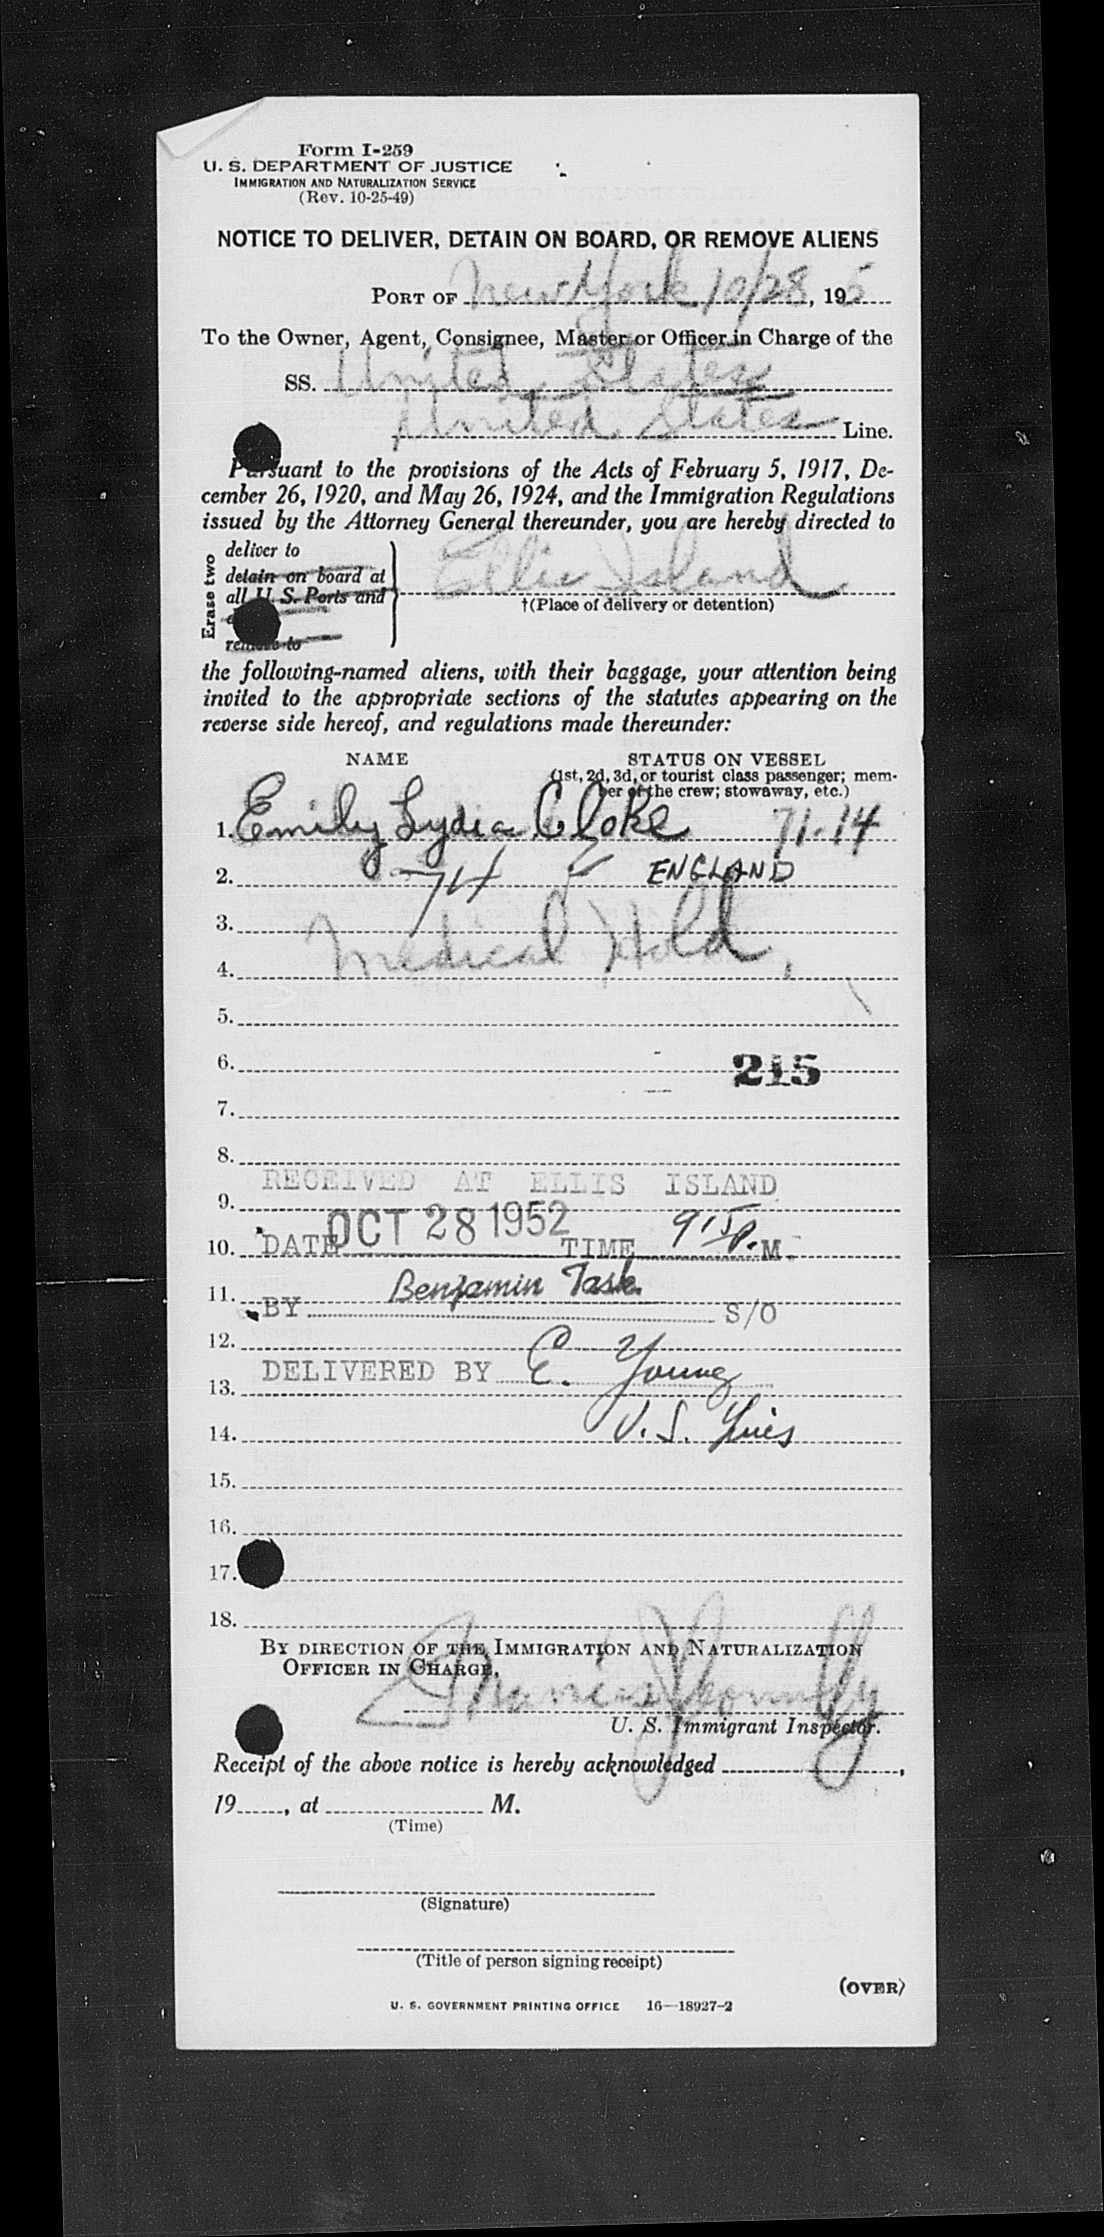 Form I-259
U. S. DEPARTMENT OF JUSTICE
IMMIGRATION AND NATURALIZATION SERVICE
(Rev. 10-25-49)
NOTICE TO DELIVER, DETAIN ON BOARD, OR REMOVE ALIENS
PORT OF New York 10/28, 195
To the Owner, Agent, Consignee, Master or Officer in Charge of the
SS. United States
United States Line.
Pursuant to the provisions of the Acts of February 5, 1917, De-
cember 26, 1920, and May 26, 1924, and the Immigration Regulations
issued by the Attorney General thereunder, you are hereby directed to
Erase two
deliver to
detain on board at
all U. S. Ports and
remove to
Ellis Island
†(Place of delivery or detention)
the following-named aliens, with their baggage, your attention being
invited to the appropriate sections of the statutes appearing on the
reverse side hereof, and regulations made thereunder:
NAME STATUS ON VESSEL
(1st, 2d, 3d, or tourist class passenger; mem-
ber of the crew; stowaway, etc.)
1. Emily Lydia Cloke 71-14
2. 74 ENGLAND
3.
4. Medical Hold,
5.
6. 215
7.
8.
RECEIVED AT ELLIS ISLAND
9.
10. DATE OCT 28 1952 TIME 9:15 P.M.
11. BY Benjamin Task S/O
12.
13. DELIVERED BY E. Young
14. U.S. Lines
15.
16.
17.
18.
BY DIRECTION OF THE IMMIGRATION AND NATURALIZATION
OFFICER IN CHARGE,
Francis J Connolly
U. S. Immigrant Inspector.
Receipt of the above notice is hereby acknowledged ,
19 , at M.
(Time)
(Signature)
(Title of person signing receipt)
(OVER)
U. S. GOVERNMENT PRINTING OFFICE 16—18927-2